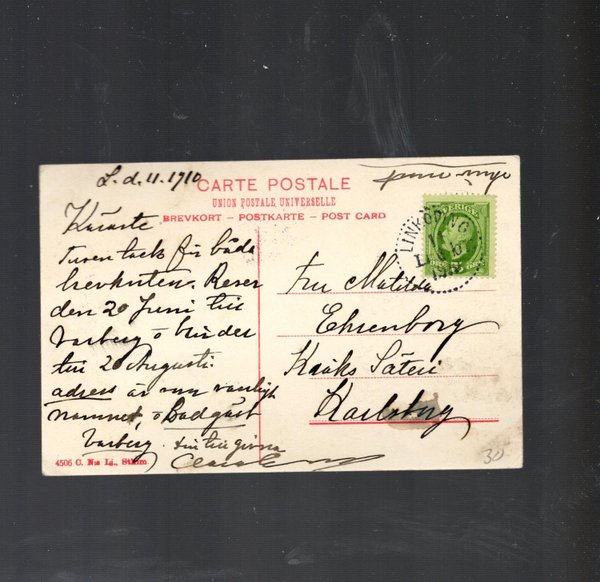 L. d. 11. 1910
CARTE POSTALE
UNION POSTALE UNIVERSELLE
BREVKORT – POSTKARTE – POST CARD
SVERIGE
LINKÖPING
1910
Käraste
Tusen tack för båda
brevkorten. Reser
den 20 Juni till
Varberg o blir der
till 20 Augusti.
adress är som vanligt
namnet, o Badgäst
Varberg.
Fru Matilda
Ehrenborg
Kråks Säteri
Karlsborg
4506 C. Nis Lj., Sthlm.
30